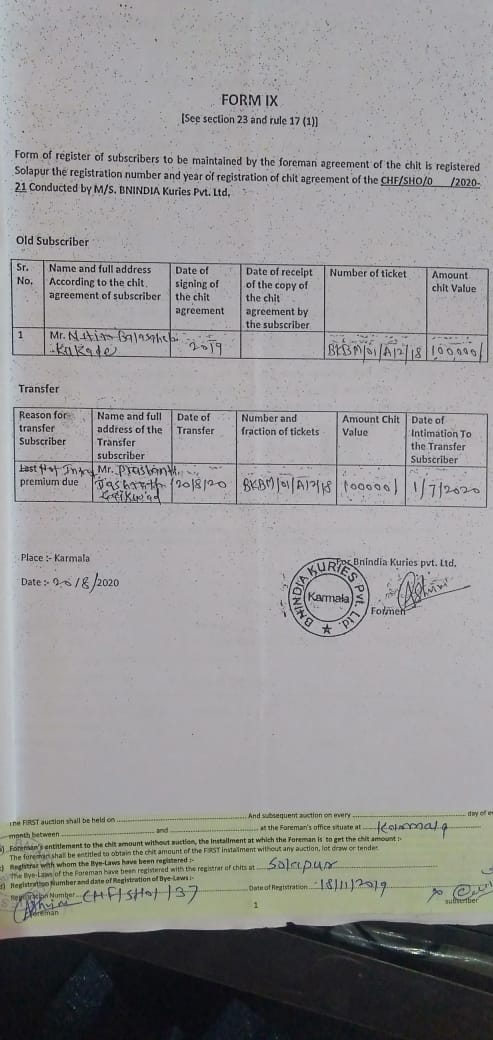 FORM IX
[See section 23 and rule 17 (1)]
Form of register of subscribers to be maintained by the foreman agreement of the chit is registered
Solapur the registration number and year of registration of chit agreement of the CHF/SHO/0 /2020-
21 Conducted by M/S. BNINDIA Kuries Pvt. Ltd.
Old Subscriber
Sr. No. Name and full address According to the chit agreement of subscriber Date of signing of the chit agreement Date of receipt of the copy of the chit agreement by the subscriber Number of ticket Amount chit Value
1 Mr. Nitin Balasaheb Kakade 2019 BKBM/01/A/2/18 100000/
Transfer
Reason for transfer Subscriber Name and full address of the Transfer subscriber Date of Transfer Number and fraction of tickets Amount Chit Value Date of Intimation To the Transfer Subscriber
Last premium due Mr. Prashant Dasharath Gaikwad 20/8/20 BKBM/01/A/2/18 100000/ 1/7/2020
Place :- Karmala
For Bnindia Kuries pvt. Ltd.
Date :- 20/8/2020
BNINDIA KURIES Pvt. Ltd.
Karmala
Formen
The FIRST auction shall be held on And subsequent auction on every day of
month between and at the Foreman's office situate at Karmala
Foreman's entitlement to the chit amount without auction, the Installment at which the Foreman is to get the chit amount :-
The foreman shall be entitled to obtain the chit amount of the FIRST installment without any auction, lot draw or tender.
Registrar with whom the Bye-Laws have been registered :-
The Bye-Laws of the Foreman have been registered with the registrar of chits at Solapur
Registration Number and date of Registration of Bye-Laws :-
Registration Number CHF/SHO1/37 Date of Registration 18/11/2019
Foreman
1
subscriber